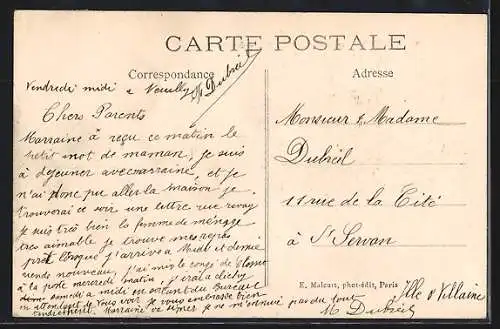 CARTE POSTALE
Correspondance
Adresse
M Dubreil
Vendredi midi à Neuilly
Chers Parents
Marraine à reçu ce matin le
petit mot de maman, je suis
à déjeuner avec marraine, et je
n'ai donc pu aller la maison je
trouverai ce soir une lettre rue
je suis très bien la femme de ménage
très aimable je trouve mes repas
prêt lorsque j'arrive à Midi et demie
nouveau, j'ai mis le
à la poste mercredi matin j'irai à Clichy
samedi à midi en sortant du Bureau
en attendant de vous voir je vous embrasse bien
tendrement. Marraine je ne m'ennuie pas du tout
M Dubreil
Monsieur & Madame
Dubreil
11 rue de la Cité
à St Servan
Ille & Villaine
E. Malcuit, phot-édit, Paris